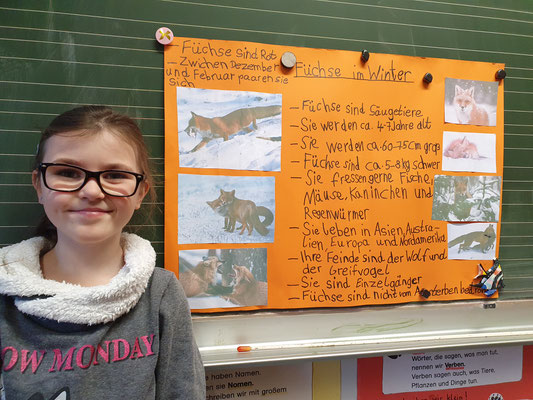 - Füchse sind Rot
- Zwichen Dezember
und Februar paaren sie
sich
Füchse im Winter
- Füchse sind Säugetiere
- Sie werden ca. 4-7 Jahre alt
- Sie werden ca. 60-75cm groß
- Füchse sind ca. 5-8 kg schwer
- Sie fressen gerne Fische,
Mäuse, Kaninchen und
Regenwürmer
- Sie leben in Asien, Austra-
lien, Europa und Nordamerika
- Ihre Feinde sind der Wolf und
der Greifvogel
- Sie sind Einzelgänger
- Füchse sind nicht vom Aussterben
OW MONDAY
haben Namen.
sie Nomen.
schreiben wir mit großem
Wörter, die sagen, was man tut,
nennen wir Verben.
Verben sagen auch, was Tiere,
Pflanzen und Dinge tun
klein!